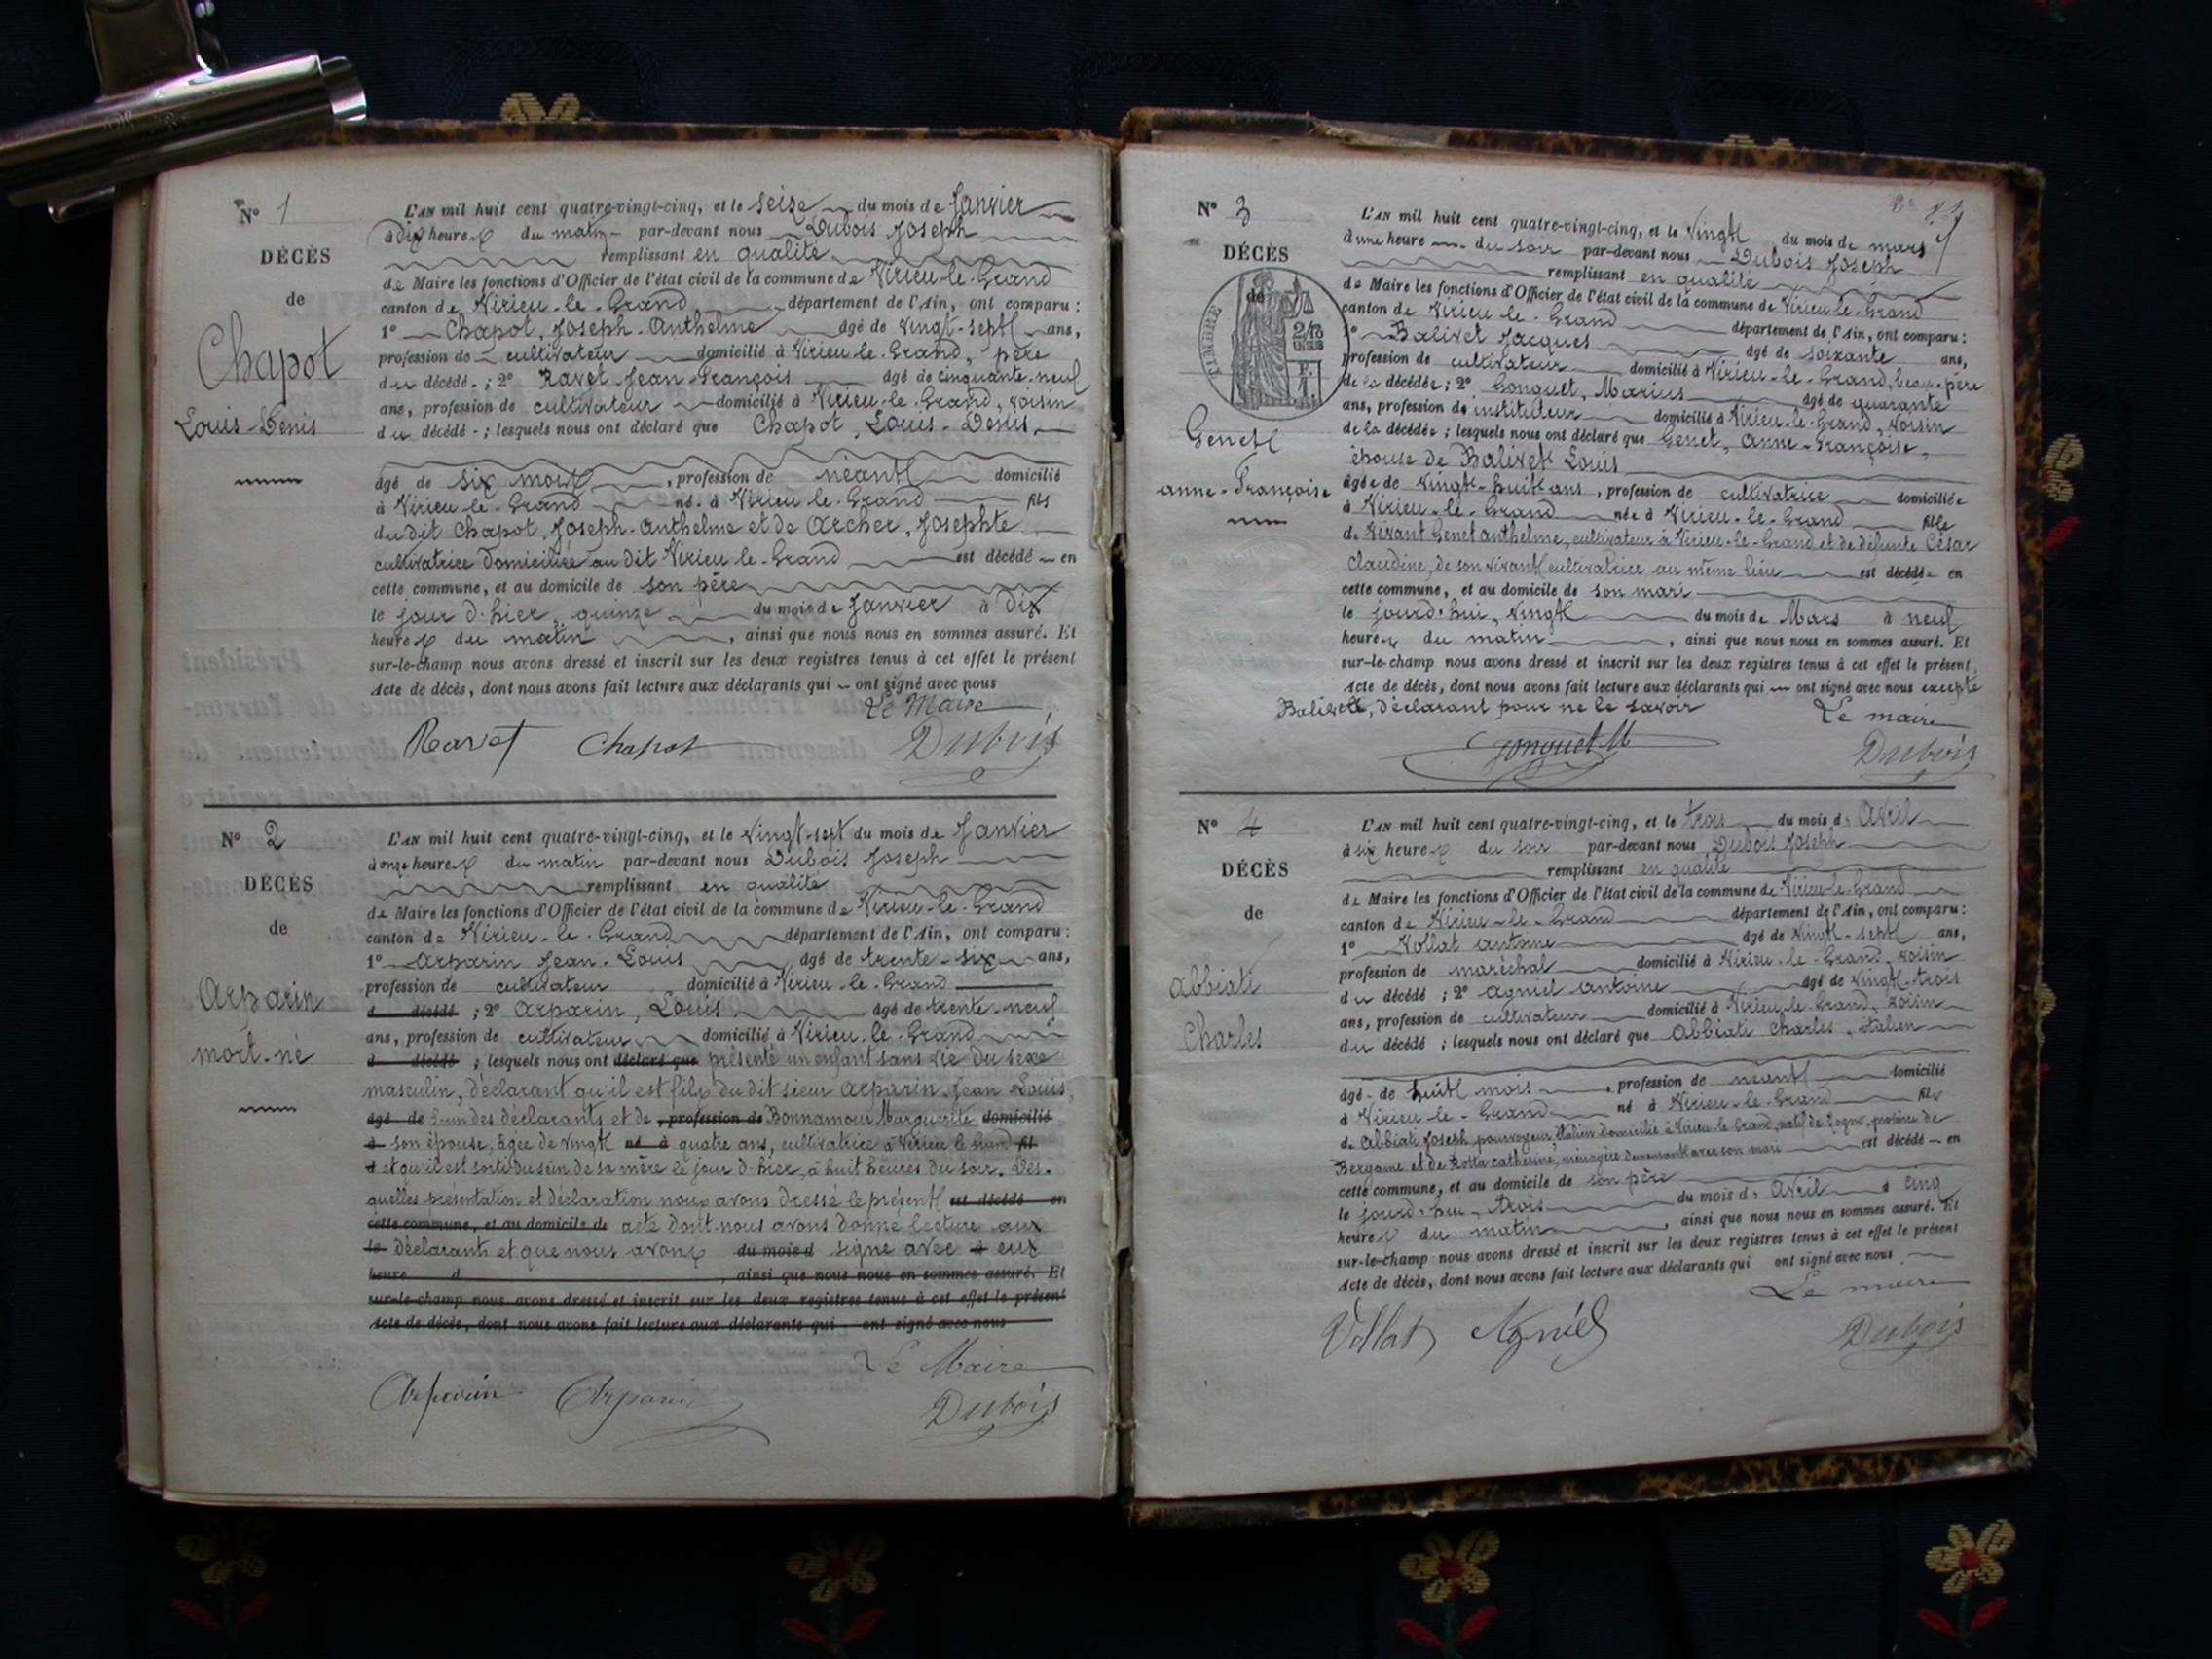 N° 1
DÉCÈS
de
Chapot
Louis-Denis
L'AN mil huit cent quatre-vingt-cinq, et le seize du mois de Janvier
à dix heures du matin par-devant nous Dubois Joseph
remplissant en qualité
de Maire les fonctions d'Officier de l'état civil de la commune de Virieu-le-Grand
canton de Virieu-le-Grand département de l'Ain, ont comparu :
1° Chapot, Joseph-Anthelme âgé de vingt-sept ans,
profession de cultivateur domicilié à Virieu-le-Grand, père
du décédé ; 2° Ravet Jean-François âgé de cinquante-neuf
ans, profession de cultivateur domicilié à Virieu-le-Grand, voisin
du décédé ; lesquels nous ont déclaré que Chapot, Louis-Denis,
âgé de six mois, profession de néant domicilié
à Virieu-le-Grand né à Virieu-le-Grand fils
du dit Chapot, Joseph-Anthelme et de Archer, Josephte
cultivatrice domiciliée au dit Virieu-le-Grand est décédé en
cette commune, et au domicile de son père
le jour d'hier, quinze du mois de Janvier à dix
heures du matin, ainsi que nous nous en sommes assuré. Et
sur-le-champ nous avons dressé et inscrit sur les deux registres tenus à cet effet le présent
Acte de décès, dont nous avons fait lecture aux déclarants qui ont signé avec nous
Le Maire
Ravet Chapot Dubois
N° 2
DÉCÈS
de
Arparin
mort-né
L'AN mil huit cent quatre-vingt-cinq, et le vingt-sept du mois de Janvier
à onze heures du matin par-devant nous Dubois Joseph
remplissant en qualité
de Maire les fonctions d'Officier de l'état civil de la commune de Virieu-le-Grand
canton de Virieu-le-Grand département de l'Ain, ont comparu :
1° Arparin Jean-Louis âgé de trente-six ans,
profession de cultivateur domicilié à Virieu-le-Grand
d décédé ; 2° Arparin, Louis âgé de trente-neuf
ans, profession de cultivateur domicilié à Virieu-le-Grand
d décédé ; lesquels nous ont déclaré que présenté un enfant sans vie du sexe
masculin, déclarant qu'il est fils du dit sieur Arparin Jean Louis,
âgé de l'un des déclarants et de , profession de Bonnamour Marguerite domicilié
à son épouse, âgée de vingt né à quatre ans, cultivatrice à Virieu le Grand fil
d et qu'il est sorti du sein de sa mère le jour d'hier, à huit heures du soir. Des-
quelles présentation et déclaration nous avons dressé le présent est décédé en
cette commune, et au domicile de acte dont nous avons donné lecture aux
le déclarants et que nous avons du mois d signé avec à eux
heure d , ainsi que nous nous en sommes assuré. Et
sur-le-champ nous avons dressé et inscrit sur les deux registres tenus à cet effet le présent
Acte de décès, dont nous avons fait lecture aux déclarants qui ont signé avec nous
Le Maire
Arparin Arparin Dubois
N° 3
DÉCÈS
de
TIMBRE
Genet
Anne-Françoise
L'AN mil huit cent quatre-vingt-cinq, et le vingt du mois de mars
à une heure du soir par-devant nous Dubois Joseph
remplissant en qualité
de Maire les fonctions d'Officier de l'état civil de la commune de Virieu-le-Grand
canton de Virieu-le-Grand département de l'Ain, ont comparu :
1° Balivet Jacques âgé de soixante ans,
profession de cultivateur domicilié à Virieu-le-Grand, beau-père
de la décédée ; 2° Gonguet, Marius âgé de quarante
ans, profession de instituteur domicilié à Virieu-le-Grand, voisin
de la décédée ; lesquels nous ont déclaré que Genet, Anne-Françoise,
épouse de Balivet Louis
âgée de vingt-huit ans, profession de cultivatrice domiciliée
à Virieu-le-Grand née à Virieu-le-Grand fille
de vivant Genet Anthelme, cultivateur à Virieu-le-Grand et de défunte César
Claudine, de son vivant cultivatrice au même lieu est décédée en
cette commune, et au domicile de son mari
le jourd'hui, vingt du mois de Mars à neuf
heures du matin, ainsi que nous nous en sommes assuré. Et
sur-le-champ nous avons dressé et inscrit sur les deux registres tenus à cet effet le présent
Acte de décès, dont nous avons fait lecture aux déclarants qui ont signé avec nous excepté
Balivet, déclarant pour ne le savoir Le maire
Gonguet M Dubois
N° 4
DÉCÈS
de
Abbiati
Charles
L'AN mil huit cent quatre-vingt-cinq, et le trois du mois d' Avril
à six heures du soir par-devant nous Dubois Joseph
remplissant en qualité
de Maire les fonctions d'Officier de l'état civil de la commune de Virieu-le-Grand
canton de Virieu-le-Grand département de l'Ain, ont comparu :
1° Vollat Antoine âgé de vingt-sept ans,
profession de maréchal domicilié à Virieu-le-Grand, voisin
du décédé ; 2° Agniel Antoine âgé de vingt-trois
ans, profession de cultivateur domicilié à Virieu-le-Grand, voisin
du décédé ; lesquels nous ont déclaré que Abbiati Charles, italien
âgé de huit mois, profession de néant domicilié
à Virieu-le-Grand né à Virieu-le-Grand fils
de Abbiati Joseph pourvoyeur, italien domicilié à Virieu-le-Grand, natif de province de
Bergame et de Rotta Catherine, ménagère demeurant avec son mari est décédé en
cette commune, et au domicile de son père
le jourd'hui, trois du mois d' Avril à cinq
heures du matin, ainsi que nous nous en sommes assuré. Et
sur-le-champ nous avons dressé et inscrit sur les deux registres tenus à cet effet le présent
Acte de décès, dont nous avons fait lecture aux déclarants qui ont signé avec nous
Le maire
Vollat Agniel Dubois